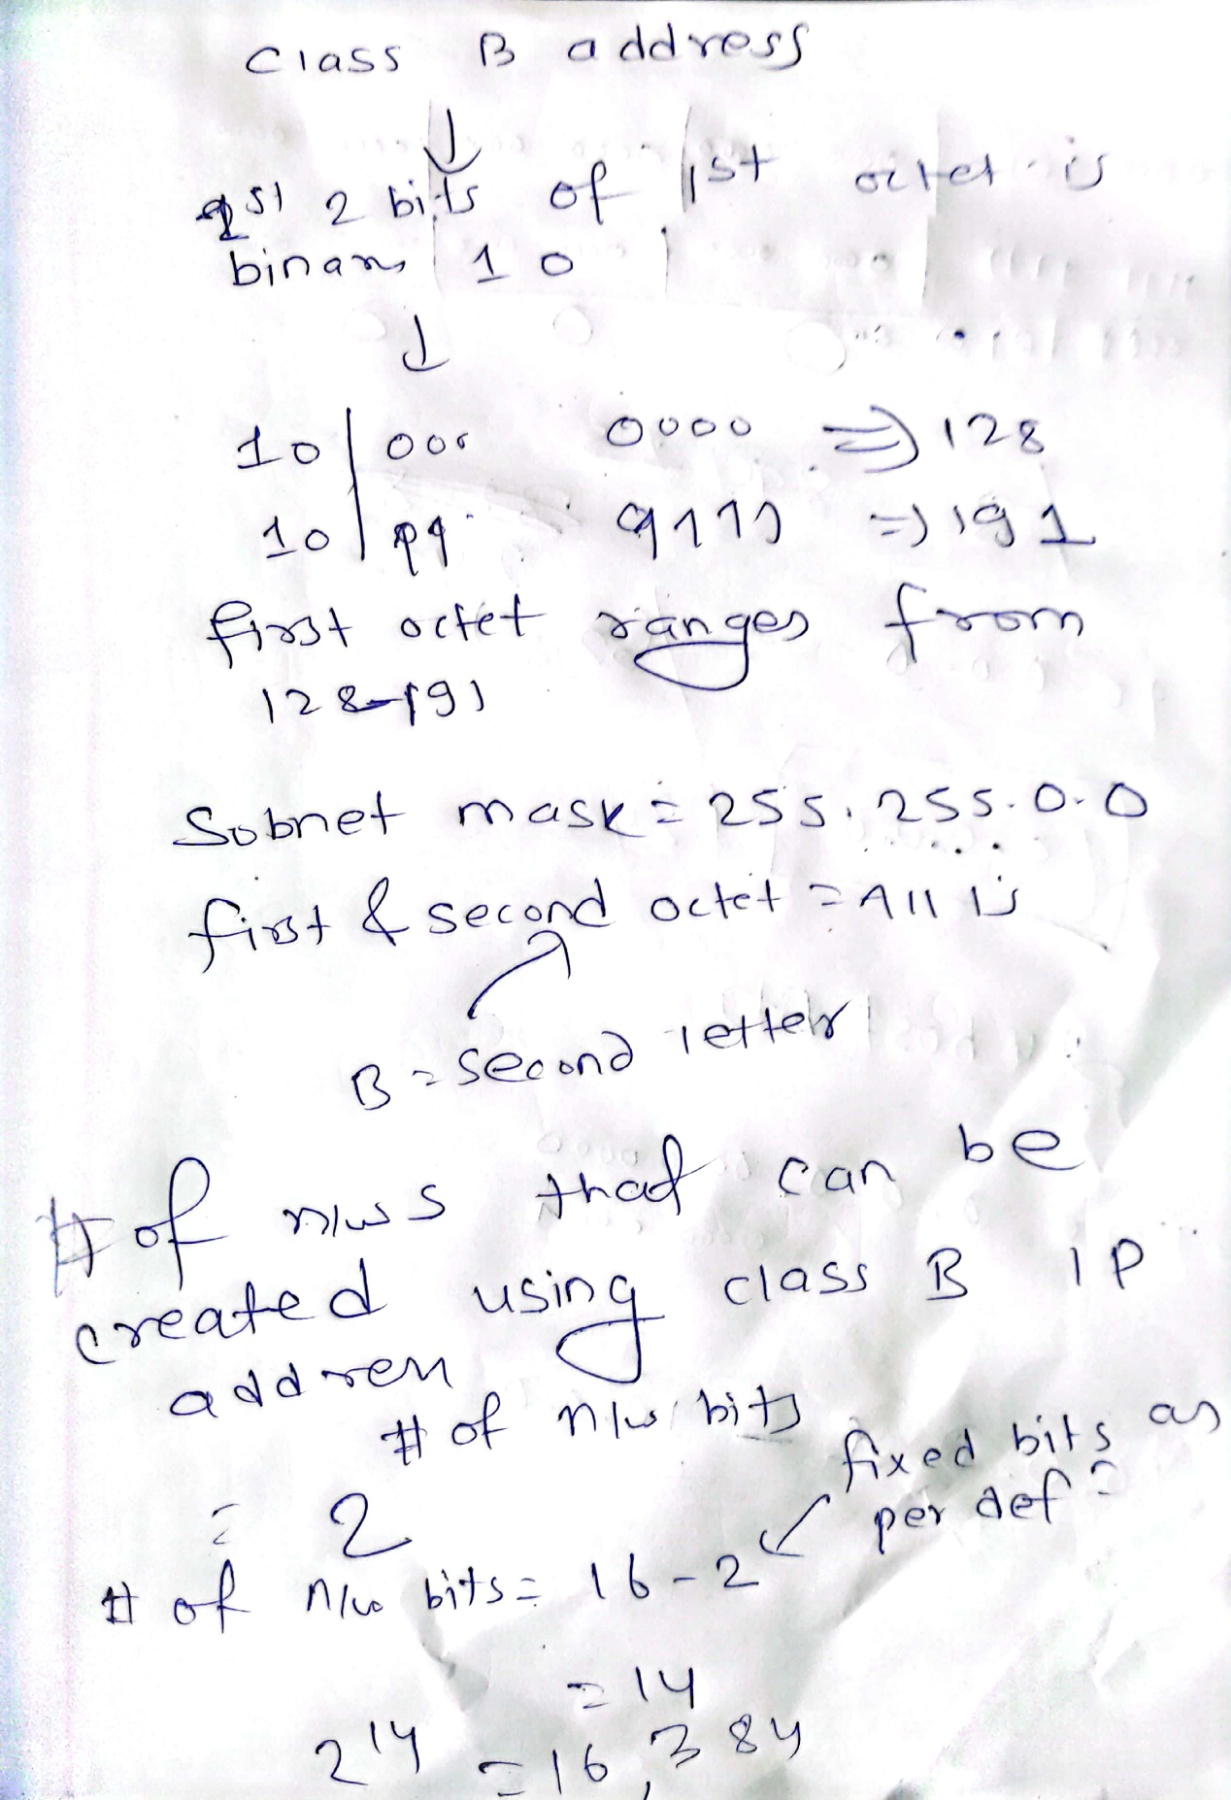 Class B address
↓
1st 2 bits of 1st octet is
binary 1 0
↓
10 | 00 0000 ⇒ 128
10 | 11 1111 ⇒ 191
first octet ranges from
128-191
Subnet mask = 255.255.0.0
first & second octet = All 1s
B = second letter
# of n/w s that can be
created using class B IP
address
# of n/w bits
= 2
fixed bits as
per defn
# of n/w bits = 16-2
= 14
2^14 = 16,384